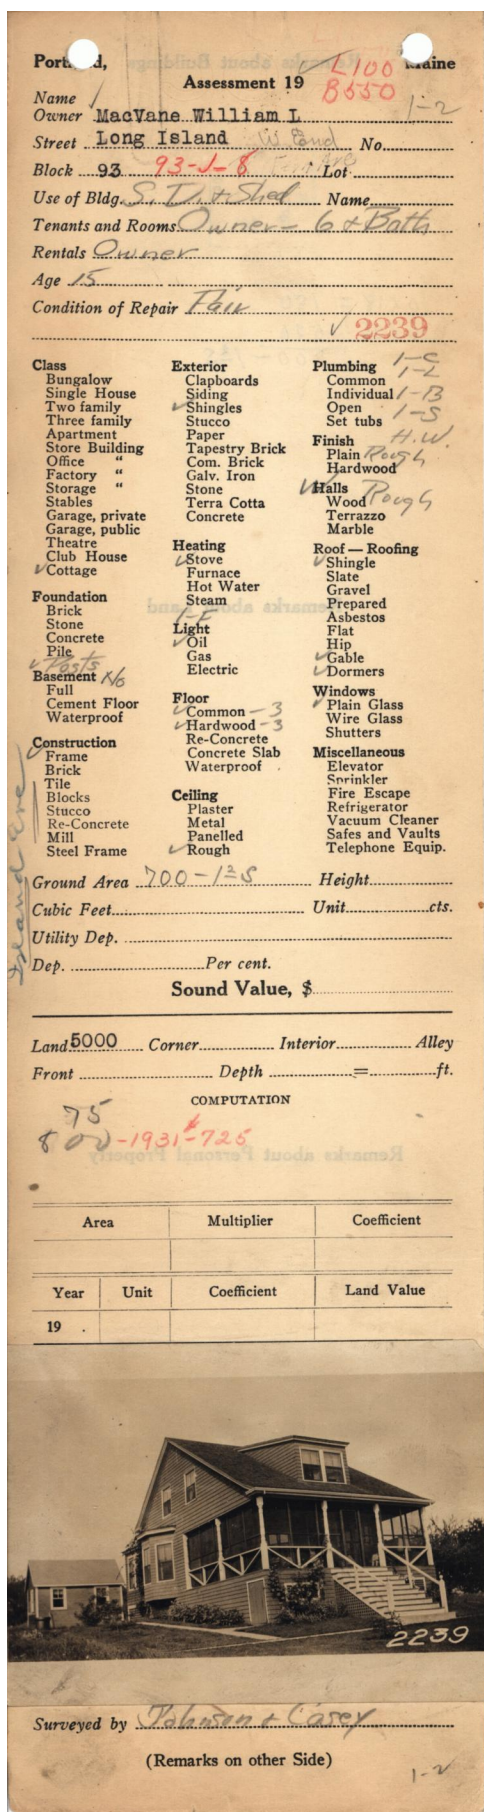 Portland, Maine
L100
Assessment 19
B550
Name
1-2
Owner MacVane William L
Street Long Island W. End No.
Block 93 93-J-8 Lot
Use of Bldg. S. D. & Shed Name
Tenants and Rooms Owner - 6 & Bath
Rentals Owner
Age 15
Condition of Repair Fair
2239
Class
Bungalow
Single House
Two family
Three family
Apartment
Store Building
Office "
Factory "
Storage "
Stables
Garage, private
Garage, public
Theatre
Club House
✓Cottage
Foundation
Brick
Stone
Concrete
Pile
✓Posts
Basement No
Full
Cement Floor
Waterproof
Construction
✓Frame
Brick
Tile
Blocks
Stucco
Re-Concrete
Mill
Steel Frame
Exterior
Clapboards
Siding
✓Shingles
Stucco
Paper
Tapestry Brick
Com. Brick
Galv. Iron
Stone
Terra Cotta
Concrete
Heating
✓Stove
Furnace
Hot Water
Steam
1-F
Light
✓Oil
Gas
Electric
Floor
✓Common - 3
✓Hardwood - 3
Re-Concrete
Concrete Slab
Waterproof
Ceiling
Plaster
Metal
Panelled
✓Rough
Plumbing 1-C
Common 1-L
Individual 1-B
Open 1-S
Set tubs
Finish H.W.
Plain Rough
Hardwood
Halls
Wood Rough
Terrazzo
Marble
Roof — Roofing
✓Shingle
Slate
Gravel
Prepared
Asbestos
Flat
Hip
✓Gable
✓Dormers
Windows
✓Plain Glass
Wire Glass
Shutters
Miscellaneous
Elevator
Sprinkler
Fire Escape
Refrigerator
Vacuum Cleaner
Safes and Vaults
Telephone Equip.
Island Ave
Ground Area 700-1½S Height
Cubic Feet Unit cts.
Utility Dep.
Dep. Per cent.
Sound Value, $
Land 5000 Corner Interior Alley
Front Depth = ft.
COMPUTATION
75
800-1931-725
Area Multiplier Coefficient
Year Unit Coefficient Land Value
19 .
2239
Surveyed by Johnson & Casey
(Remarks on other Side)
1-2